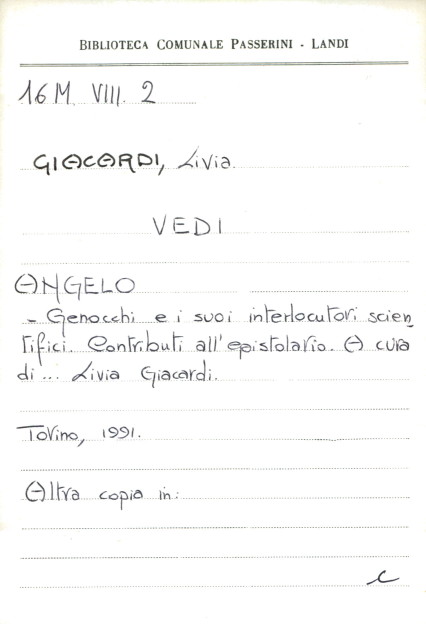 BIBLIOTECA COMUNALE PASSERINI - LANDI
16 M. VIII. 2
GIACARDI, Livia.
VEDI
ANGELO
- Genocchi e i suoi interlocutori scien_
tifici. Contributi all'epistolario. A cura
di ... Livia Giacardi.
Torino, 1991.
Altra copia in:
c